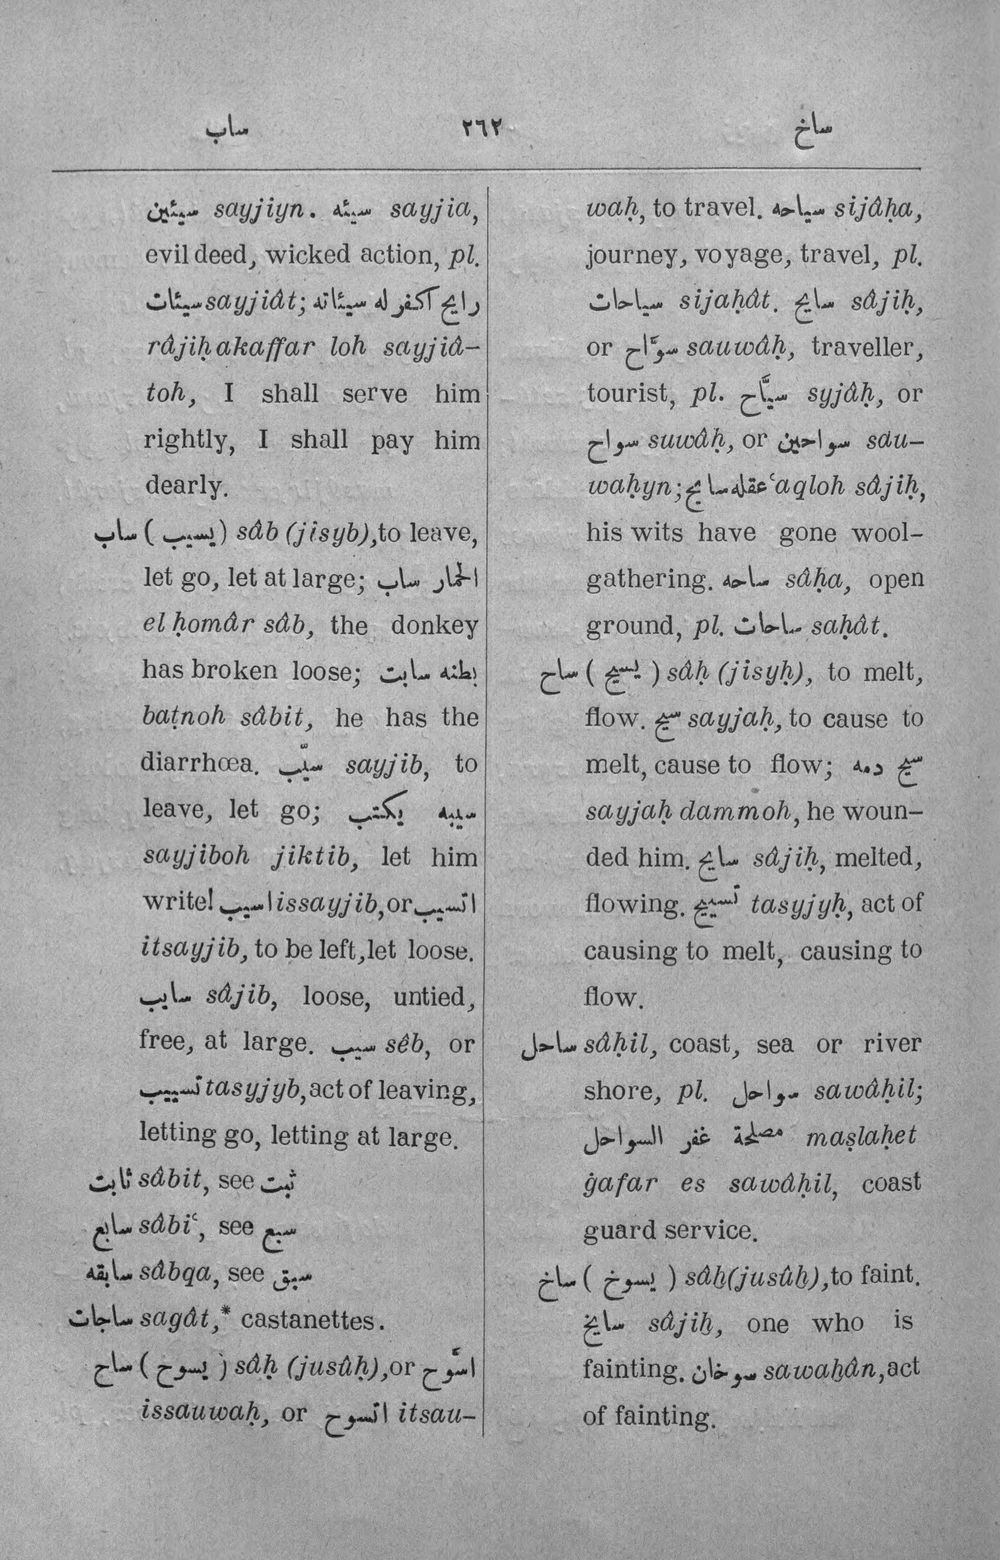 ساب ٢٦٢ ساخ
سيئين sayjiyn. سيئه sayjia,
evil deed, wicked action, pl.
سيئات sayjiât; رايح اكفر له سيئاته
râjiḥ akaffar loh sayjiâ-
toh, I shall serve him
rightly, I shall pay him
dearly.
ساب (يسيب) sâb (jisyb), to leave,
let go, let at large; الحمار ساب
el ḥomâr sâb, the donkey
has broken loose; بطنه سابت
baṭnoh sâbit, he has the
diarrhœa. سيّب sayjib, to
leave, let go; سيبه يكتب
sayjiboh jiktib, let him
write! اسيب issayjib, or اتسيب
itsayjib, to be left, let loose.
سايب sâjib, loose, untied,
free, at large. سيب sêb, or
تسييب tasyjyb, act of leaving,
letting go, letting at large.
ثابت sâbit, see ثبت
سابع sâbiʿ, see سبع
سابقه sâbqa, see سبق
ساجات sagât,* castanettes.
ساح (يسوح) sâḥ (jusûḥ), or اسّوح
issauwaḥ, or اتسوح itsau-
waḥ, to travel. سياحه sijâḥa,
journey, voyage, travel, pl.
سياحات sijaḥât. سايح sâjiḥ,
or سوّاح sauwâḥ, traveller,
tourist, pl. سيّاح syjâḥ, or
سواح suwâḥ, or سواحين sau-
waḥyn; عقله سايح ʿaqloh sâjiḥ,
his wits have gone wool-
gathering. ساحه sâḥa, open
ground, pl. ساحات saḥât.
ساح (يسيح) sâḥ (jisyḥ), to melt,
flow. سيح sayjaḥ, to cause to
melt, cause to flow; سيح دمه
sayjaḥ dammoh, he woun-
ded him. سايح sâjiḥ, melted,
flowing. تسييح tasyjyḥ, act of
causing to melt, causing to
flow.
ساحل sâḥil, coast, sea or river
shore, pl. سواحل sawâḥil;
مصلحة غفر السواحل maṣlaḥet
ġafar es sawâḥil, coast
guard service.
ساخ (يسوخ) sâḫ (jusûḫ), to faint.
سايخ sâjiḫ, one who is
fainting. سوخان sawaḫân, act
of fainting.